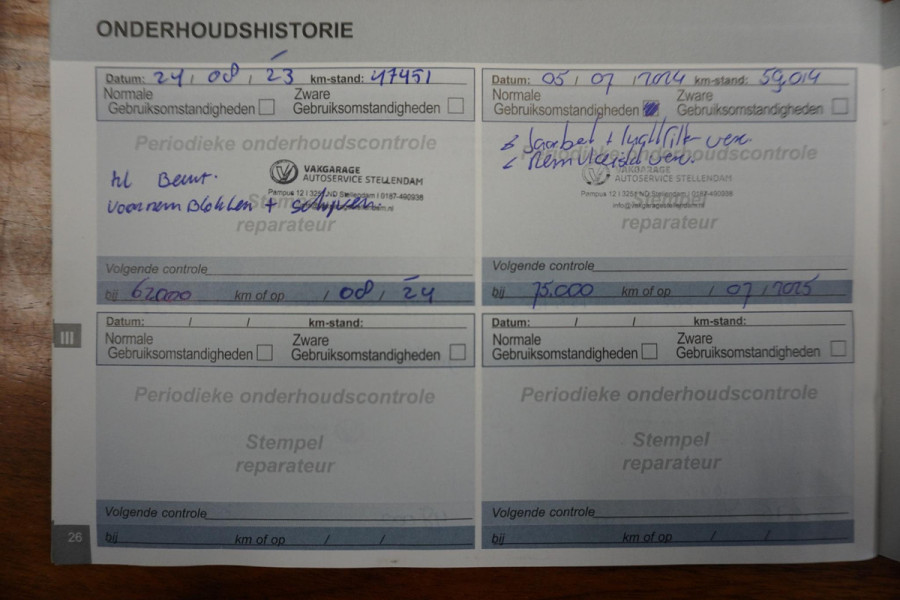 ONDERHOUDSHISTORIE
Datum: 24 / 08 / 23 km-stand: 47451
Normale Gebruiksomstandigheden Zware Gebruiksomstandigheden
Periodieke onderhoudscontrole
VAKGARAGE
AUTOSERVICE STELLENDAM
Beurt.
Pompus 12 | 3251 ND Stellendam | 0187-490938
voorrem Blokken + schijven.
Stempel
reparateur
Volgende controle
bij 62000 km of op / 08 / 24
Datum: 05 / 07 / 2024 km-stand: 59.014
Normale Gebruiksomstandigheden Zware Gebruiksomstandigheden
Periodieke onderhoudscontrole
+ luchtfilter ver.
Remvloeistof ver.
VAKGARAGE
AUTOSERVICE STELLENDAM
Pompus 12 | 3251 ND Stellendam | 0187-490938
Stempel
reparateur
Volgende controle
bij 75.000 km of op / 07 / 2025
III
Datum: / / km-stand:
Normale Gebruiksomstandigheden Zware Gebruiksomstandigheden
Periodieke onderhoudscontrole
Stempel
reparateur
Volgende controle
bij km of op / /
Datum: / / km-stand:
Normale Gebruiksomstandigheden Zware Gebruiksomstandigheden
Periodieke onderhoudscontrole
Stempel
reparateur
Volgende controle
bij km of op / /
26